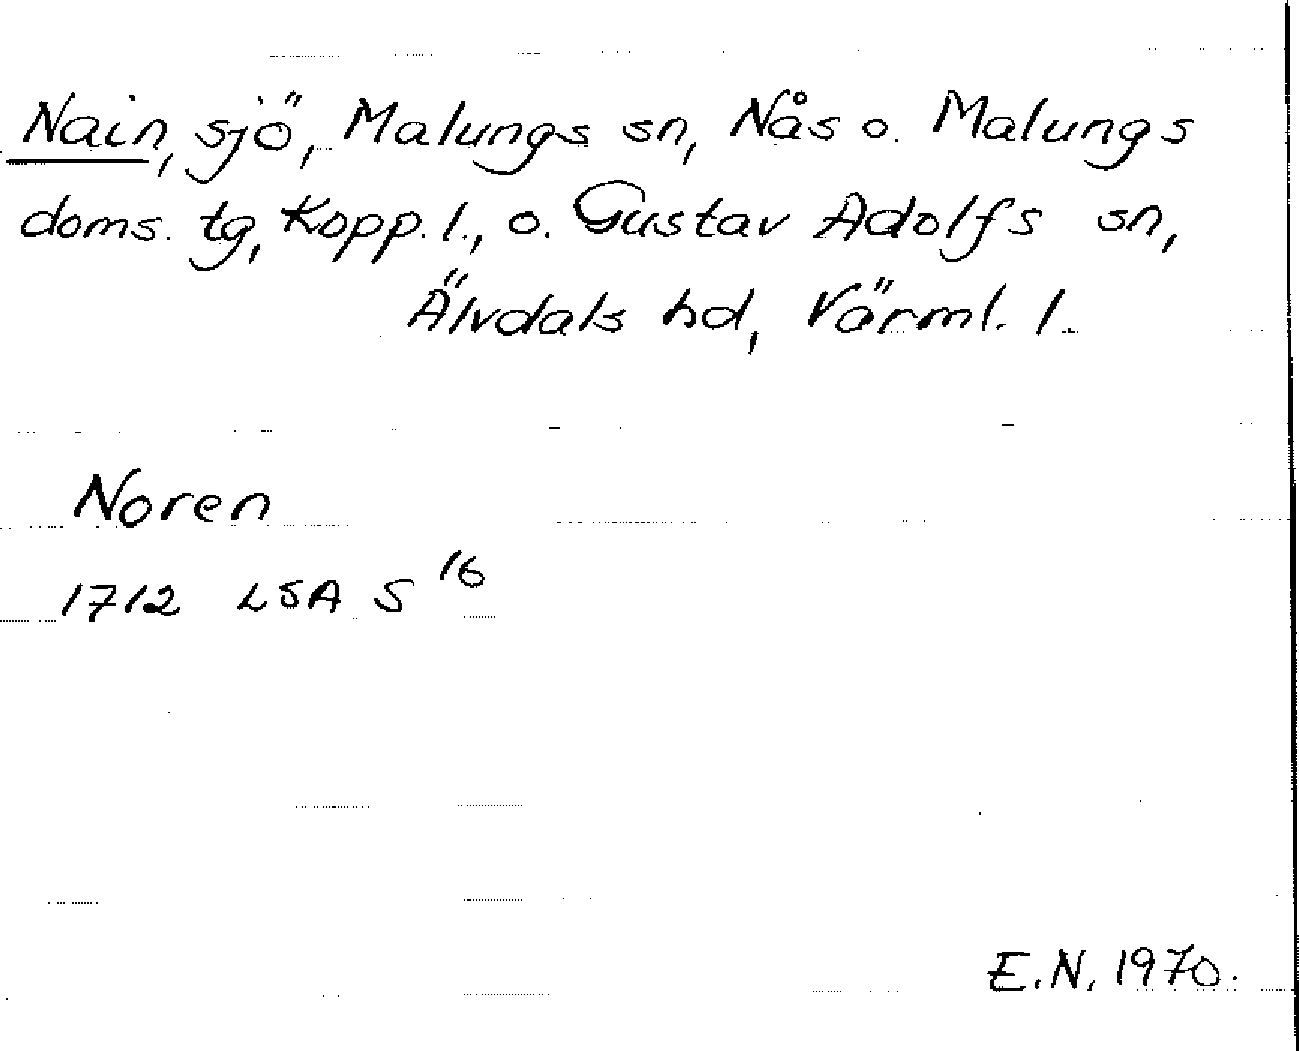 Nain, sjö, Malungs sn, Nås o. Malungs
doms. tg, Kopp. l., o. Gustav Adolfs sn,
Älvdals hd, Värml. l.
Noren
1712 LSA S 16
E.N. 1970.